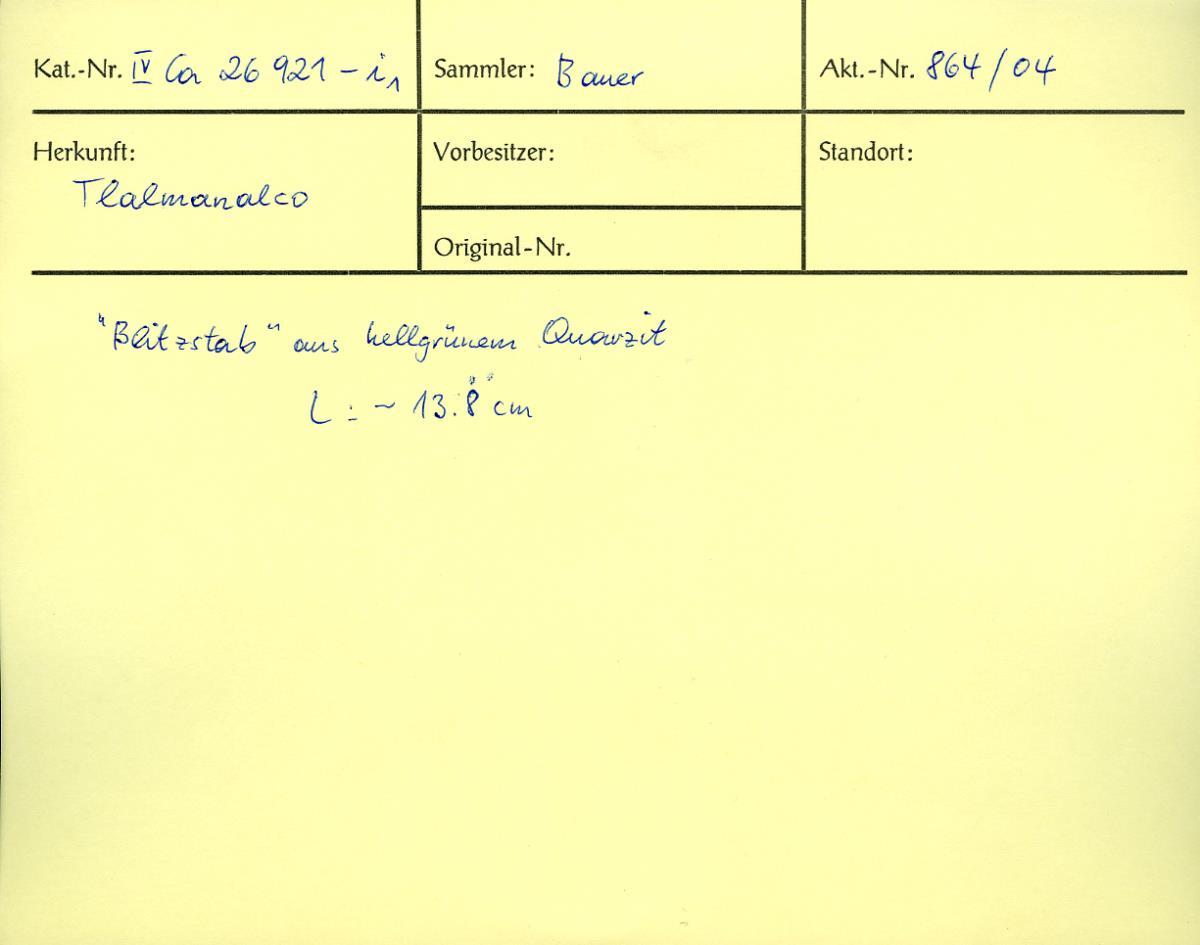 Kat.-Nr. IV Ca 26 921 - i1
Sammler: Bauer
Akt.-Nr. 864/04
Herkunft:
Tlalmanalco
Vorbesitzer:
Original-Nr.
Standort:
"Blitzstab" aus hellgrünem Quarzit
L: ~ 13.8 cm